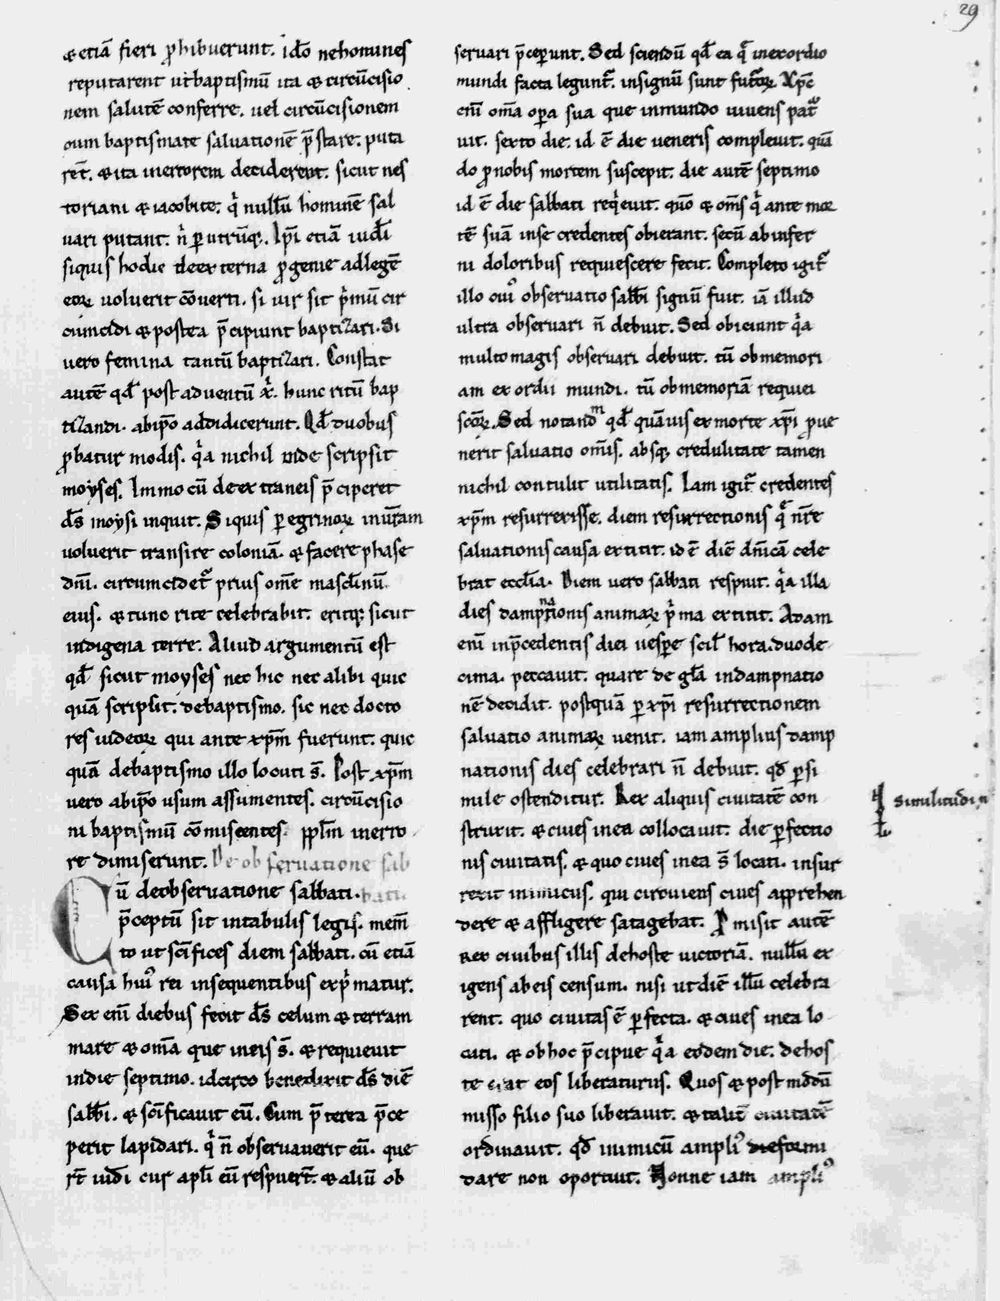 29
& etiā fieri ꝓhibuerunt. idō ne homines
reputarent ut baptismū ita & circūcisio
nem salutē conferre. uel circūcisionem
cum baptismate saluationē p̄stare. puta
rēt. & ita in errorem deciderent. sicut nes
toriani & iacobite. q̇ nullū hominē sal
uari putant. n̄ ꝑ utrūq;. Ip̄i etiā iudi̅
siquis hodie de externa ꝓgenie ad legē
eoꝝ uoluerit cōuerti. si uir sit p̄mū cir
cumcidi & postea p̄cipiunt baptizari. Si
uero femina tantū baptizari. Constat
autē qd̄ post aduentū x̄. hunc ritū bap
tizandi. ab ip̄o addidicerunt. Qd̄ duobus
ꝓbatur modis. q̇a nichil inde scripsit
moyses. Immo cū de extraneis p̄ciperet
d̄s moysi inquit. Siquis ꝑegrinoꝝ in ur̄am
uoluerit transire coloniā. & facere phase
dn̄i. circumcidet᷑ prius om̄e masclinū
eius. & tunc rite celebrabit. eritq; sicut
indigena terre. Aliud argumentū est
qd̄ sicut moyses nec hic nec alibi quic
quā scripsit. de baptismo. sic nec docto
res iudeoꝝ qui ante xp̄m fuerunt. quic
quā de baptismo illo locuti s̄. Post xp̄m
uero ab ip̄o usum assumentes. circūcisio
ni baptismū cōmiscentes. ppl̄m in erro
re dimiserunt. De obseruatione sab
Cū de obseruatione sabbati. bati.
p̄ceptū sit in tabulis legis. mem̄
to ut sc̄ifices diem sabbati. cū etiā
causa hui᷒ rei in sequentibus exp̄matur.
Sex eni̅ diebus fecit d̄s celum & terram
mare & om̄a que in eis s̄. & requieuit
in die septimo. idcirco benedixit d̄s diē
sabb̄i. & sc̄ificauit eū. Cum p̄terea p̄ce
perit lapidari. q̇ n̄ obseruauerit eū. que
rt̄ iudi̅ cur apl̄i eū respuert̄. & aliū ob
seruari p̄ceperunt. Sed sciendū qd̄ ea q̄ in exordio
mundi facta legunt᷑. in signū sunt futoꝝ. Xp̄c
eni̅ om̄a oꝑa sua que in mundo uiuens pat᷑
uit. sexto die. id ē die ueneris compleuit. quā
do ꝓ nobis mortem suscepit. die autē septimo
id ē die sabbati req̇euit. quō & om̄s q̇ ante moꝝ
tē suā in se credentes obierant. secū ab infer
ni doloribus requiescere fecit. Completo igit᷑
illo cui᷒ obseruatio sabb̄i signū fuit. iā illud
ultra obseruari n̄ debuit. Sed obiciunt q̇a
multo magis obseruari debuit. tū ob memori
am exordii mundi. tū ob memoriā requiei
sc̄oꝝ. Sed notandm̄ qd̄ quāuis ex morte xp̄i ꝓue
nerit saluatio om̄is. absq; credulitate tamen
nichil contulit utilitatis. Iam igit᷑ credentes
xp̄m resurrexisse. diem resurrectionis q̄ nr̄e
saluationis causa extitit. id ē diē dn̄icā cele
brat eccl̄ia. Diem uero sabbati respuit. q̇a illa
dies dampnationis animaꝝ p̄ma extitit. Adam
eni̅ in p̄cedentis diei uesꝑe scil̄ hora duode
cima. peccauit. quare de gl̄a in dampnatio
nē decidit. postquā ꝑ xp̄i resurrectionem
saluatio animaꝝ uenit. iam amplius damp
nationis dies celebrari n̄ debuit. qd̄ ꝑ si
mile ostenditur. Rex aliquis ciuitatē con
struxit. & ciues in ea collocauit. die ꝑfectio
nis ciuitatis. & quo ciues in ea s̄ locati. insur
rexit inimicus. qui circuiens ciues apprehen
dere & affligere satagebat. P̄misit autē
Rex ciuibus illis de hoste uictoriā. nullū ex
igens ab eis censum. nisi ut diē illū celebra
rent. quo ciuitas ē ꝑfecta. & ciues in ea lo
cati. & ob hoc p̄cipue q̇a eodem die. de hos
te erat eos liberaturus. Quos & post modū
misso filio suo liberauit. & talit̄ ciuitatē
ordinauit. qd̄ inimicū ampli᷒ die
dare non oportuit. Nonne iam ampli᷒
Similitudi